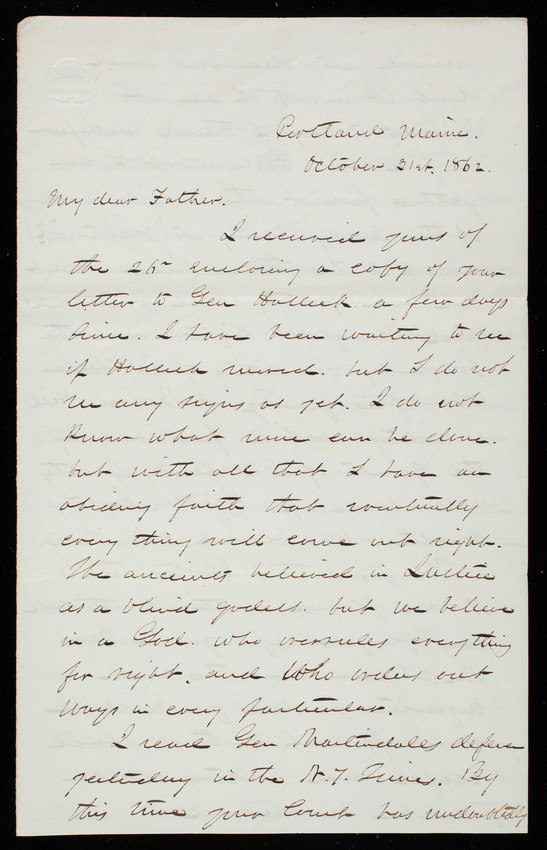 Portland Maine.
October 31st. 1862.
My dear Father.
I received yours of
the 26th enclosing a copy of your
letter to Gen Halleck a few days
since. I have been waiting to see
if Halleck moved. but I do not
see any signs as yet. I do not
know what more can be done.
but with all that I have an
abiding faith that eventually
every thing will come out right.
The ancients believed in Justice
as a blind goddess. but we believe
in a God. who overrules everything
for right. and Who orders our
ways in every particular.
I read Gen Martindales defence
yesterday in the N.Y. Times. By
this time your Court has undoubtedly